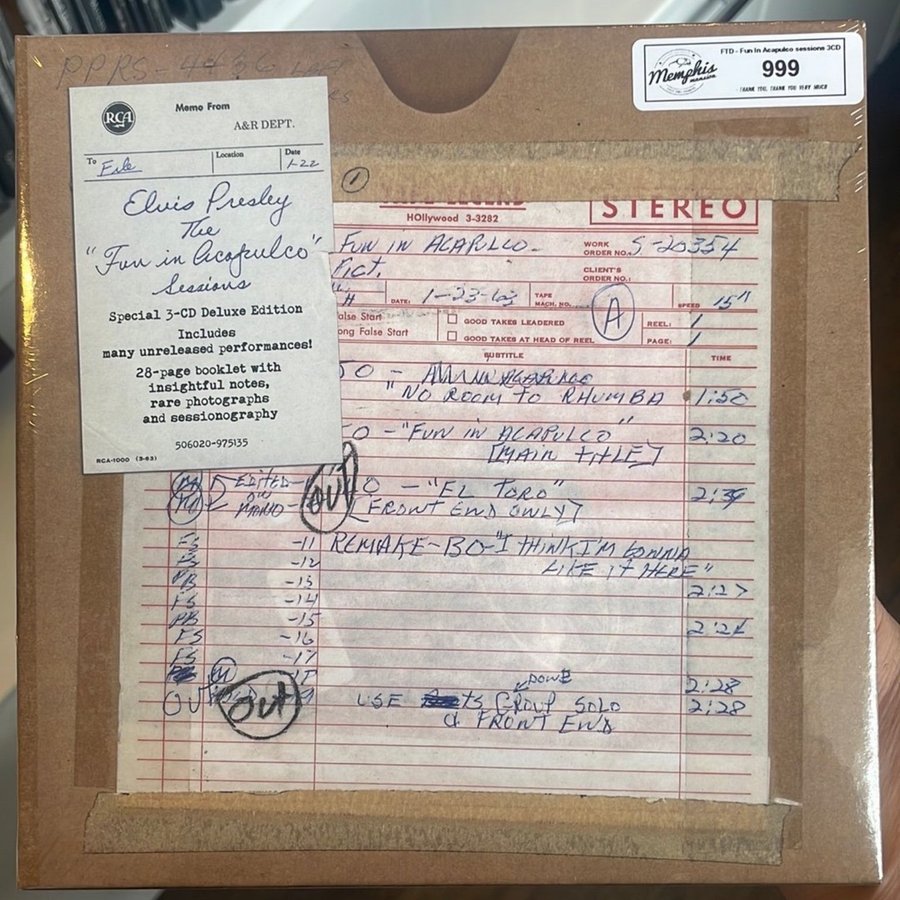 PPRS-4436
FTD - Fun In Acapulco sessions 3CD
Memphis
mansion
999
- THANK YOU, THANK YOU VERY MUCH
RCA
Memo From
A&R DEPT.
To File
Location
Date 1-22
Elvis Presley
The
"Fun in Acapulco"
Sessions
Special 3-CD Deluxe Edition
Includes
many unreleased performances!
28-page booklet with
insightful notes,
rare photographs
and sessionography
506020-975135
RCA-1000 (3-63)
1
HOllywood 3-3282
STEREO
FUN IN ACAPULCO
WORK ORDER NO. S-20354
PICT.
CLIENT'S ORDER NO.:
DATE: 1-23-63
TAPE MACH. NO.
A
SPEED 15"
alse Start
GOOD TAKES LEADERED
REEL: 1
ong False Start
GOOD TAKES AT HEAD OF REEL
PAGE: 1
SUBTITLE
TIME
"NO ROOM TO RHUMBA 1:50
"FUN IN ACAPULCO" 2:20
[MAIN TITLE]
EDITED OUT - "EL TORO" 2:39
ON MONO [FRONT END ONLY]
FS -11 REMAKE-BO-"I THINK I'M GONNA
FS -12 LIKE IT HERE"
PB -13 2:27
FS -14
PB -15 2:24
FS -16
FS -17
2:28
OUT OUT USE GROUP SOLO 2:28
& FRONT END